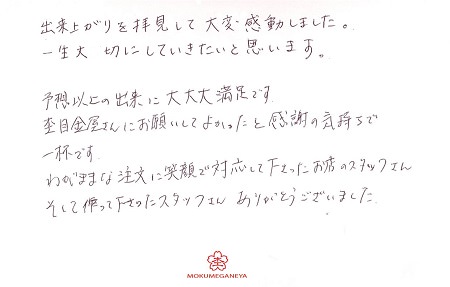 出来上がりを拝見して大変感動しました。
一生大切にしていきたいと思います。
予想以上の出来に大大大満足です
杢目金屋さんにお願いしてよかったと感謝の気持ちで
一杯です。
わがままな注文に笑顔で対応して下さったお店のスタッフさん
そして作って下さったスタッフさん ありがとうございました
MOKUMEGANEYA